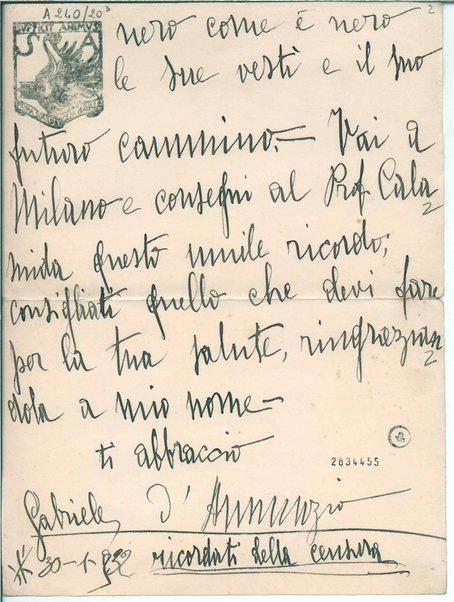 A 240/20³
2
SVFFICIT ANIMVS
nero come è nero
le sue vesti e il suo
futuro cammino. — Vai a
Milano e consegni al Prof. Cala
mida questo umile ricordo;
consigliati quello che devi fare
per la tua salute, ringrazian
dola a mio nome —
ti abbraccio
2834455
Gabriele d'Annunzio
30-1-922 ricordati della censura